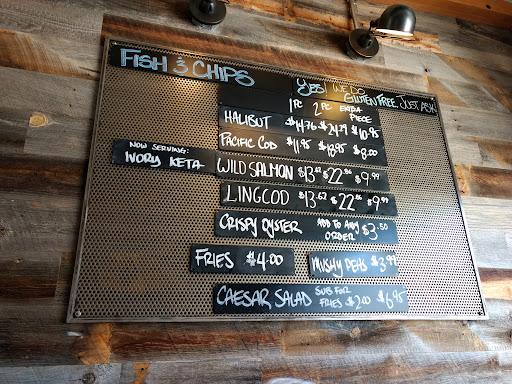 FISH & CHIPS
YES! WE DO
GLUTEN FREE. JUST ASK
1 PC 2 PC EXTRA PIECE
HALIBUT $14.76 $24.29 $10.95
PACIFIC COD $11.95 $18.95 $8.00
NOW SERVING:
IVORY KETA
WILD SALMON $13.62 $22.86 $9.99
LINGCOD $13.62 $22.86 $9.99
CRISPY OYSTER ADD TO ANY ORDER $3.50
FRIES $4.00
MUSHY PEAS $3.99
CAESAR SALAD SUB FOR FRIES $2.00 $6.95